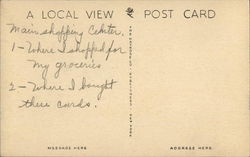 A LOCAL VIEW POST CARD
Main shopping center.
1 - Where I shopped for
my groceries
2 - Where I bought
these cards.
MESSAGE HERE ADDRESS HERE